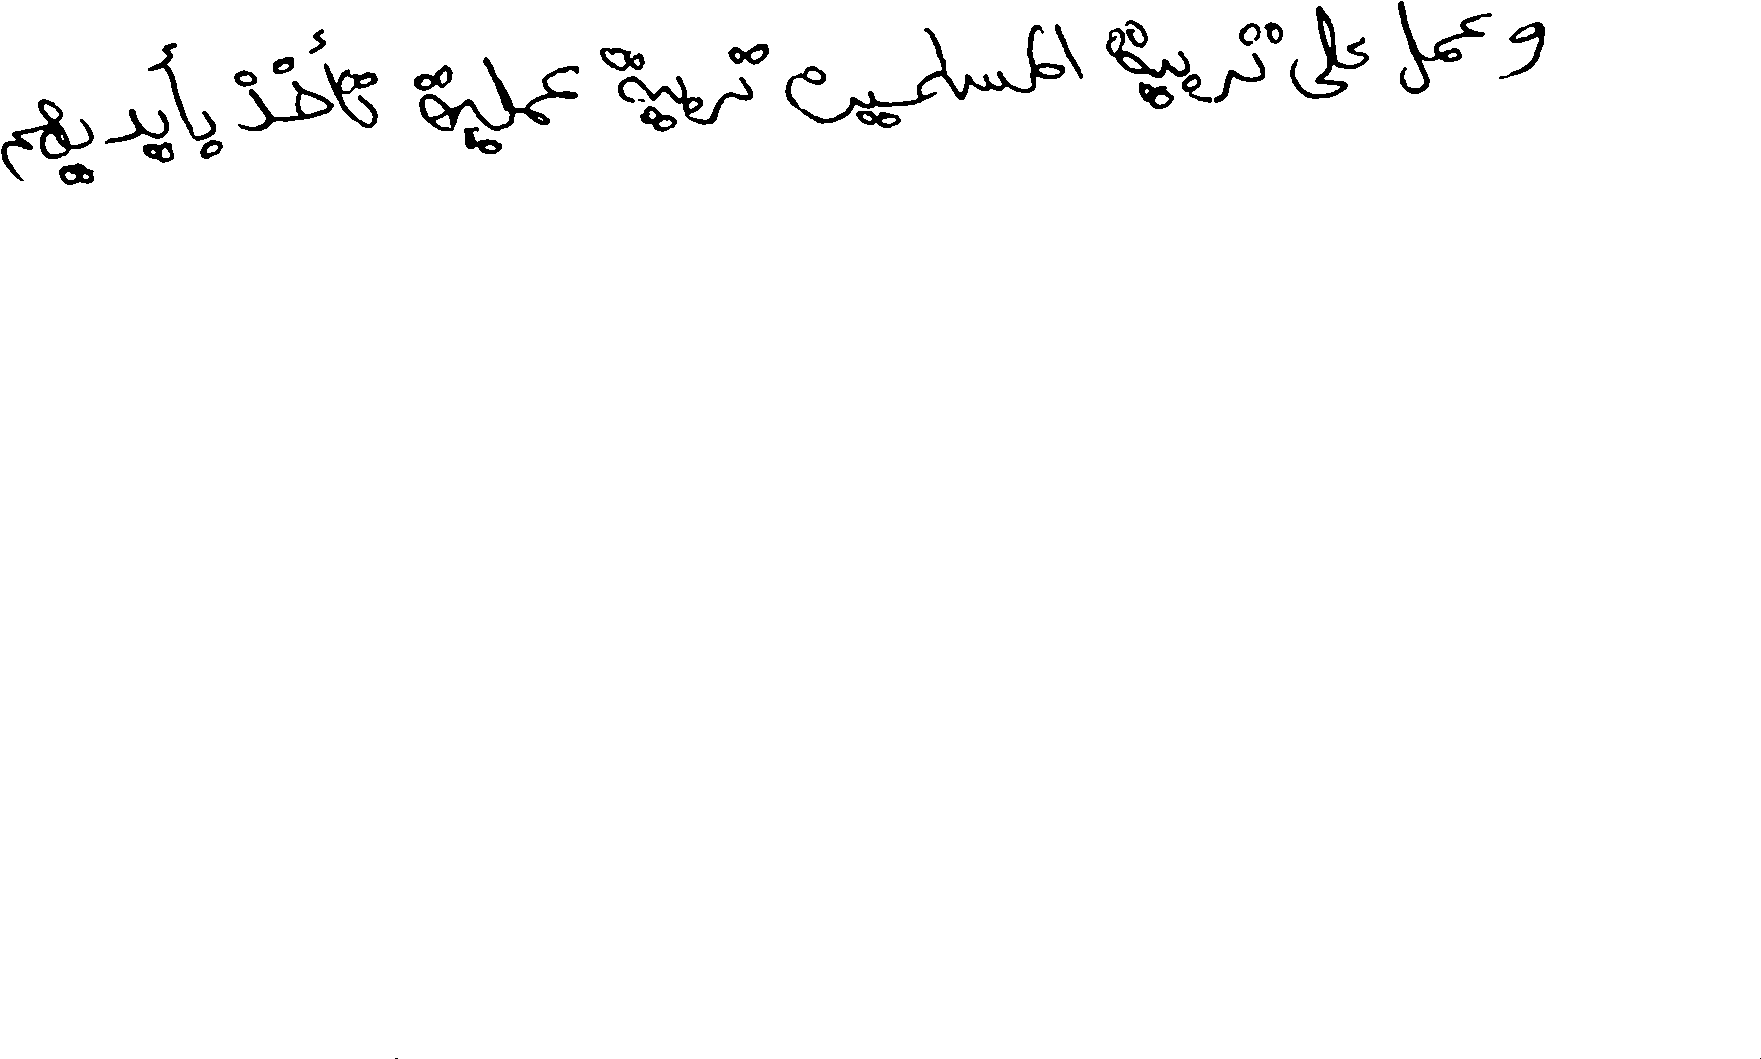 وعمل على تربية المسلمين تربية عملية تأخذ بأيديهم